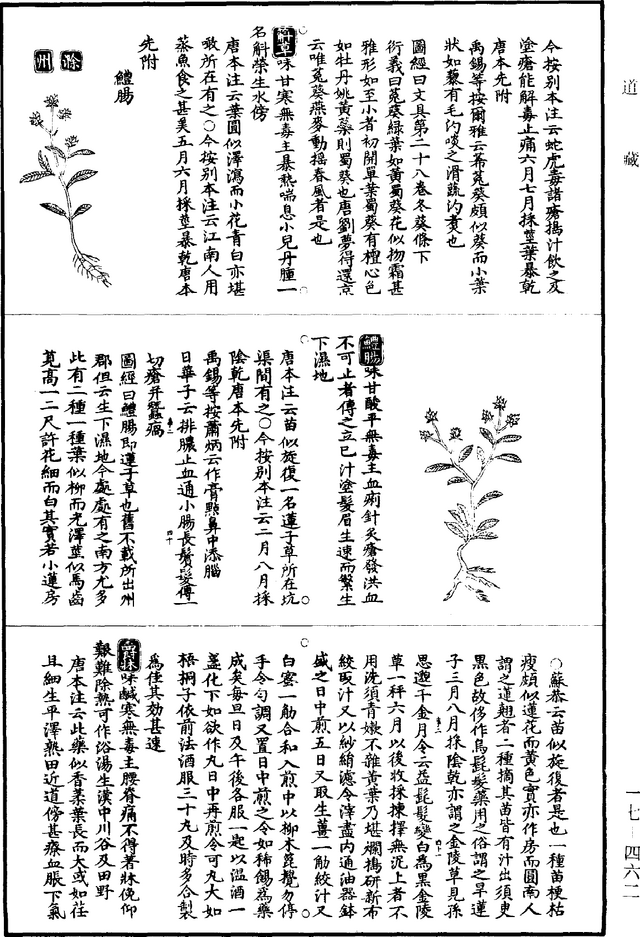 道藏
今按别本注云蛇虎毒諸瘡搗汁飲之及
塗瘡能解毒止痛六月七月採莖葉暴乾
唐本先附
禹錫等按爾雅云莃菟葵頗似葵而小葉
狀如藜有毛汋啖之滑疏汋煑也
圖經曰文具第二十八卷冬葵條下
衍義曰菟葵緑葉如黄蜀葵花似拗霜甚
雅形如至小者初開單葉蜀葵有檀心色
如牡丹姚黄蘂則蜀葵也唐劉夢得還京
云唯菟葵燕麥動摇春風者是也
蔛草味甘寒無毒主暴熱喘息小兒丹腫一
名蔛榮生水傍
唐本注云葉圓似澤瀉而小花青白亦堪
噉所在有之○今按别本注云江南人用
蒸魚食之甚美五月六月採莖暴乾唐本
先附
鱧腸
滁州
鱧腸味甘酸平無毒主血痢針灸瘡發洪血
不可止者傅之立已汁塗髮眉生速而繁生
下濕地
唐本注云苗似旋復一名蓮子草所在坑
渠間有之○今按别本注云二月八月採
陰乾唐本先附
禹錫等按蕭炳云作膏點鼻中添腦
日華子云排膿止血通小腸長鬚髮傅一
切瘡并蠶瘑
圖經曰鱧腸即蓮子草也舊不載所出州
郡但云生下濕地今處處有之南方尤多
此有二種一種葉似柳而光澤莖似馬齒
莧高一二尺許花細而白其實若小蓮房
○蘇恭云苗似旋復者是也一種苗梗枯
瘦頗似蓮花而黄色實亦作房而圓南人
謂之蓮翹者二種摘其苗皆有汁出須臾
黑色故多作烏髭髮藥用之俗謂之旱蓮
子三月八月採陰乾亦謂之金陵草見孫
思邈千金月令云益髭髮變白爲黑金陵
草一秤六月以後收採揀擇無泥土者不
用洗須青嫩不雜黄葉乃堪爛搗研新布
絞取汁又以紗絹濾令滓盡内通油器鉢
盛之日中煎五日又取生薑一觔絞汁又
白蜜一觔合和入煎中以柳木篦攪勿停
手令匀調又置日中煎之令如稀餳爲藥
成矣每旦日及午後各服一匙以温酒一
盞化下如欲作丸日中再煎令可丸大如
梧桐子依前法酒服三十丸及時多合製
爲佳其効甚速
味鹹寒無毒主腰脊痛不得著牀俛仰
艱難除熱可作浴湯生漢中川谷及田野
唐本注云此藥似香葇葉長而大或如荏
且細生平澤熟田近道傍甚療血脹下氣
一七—四六二